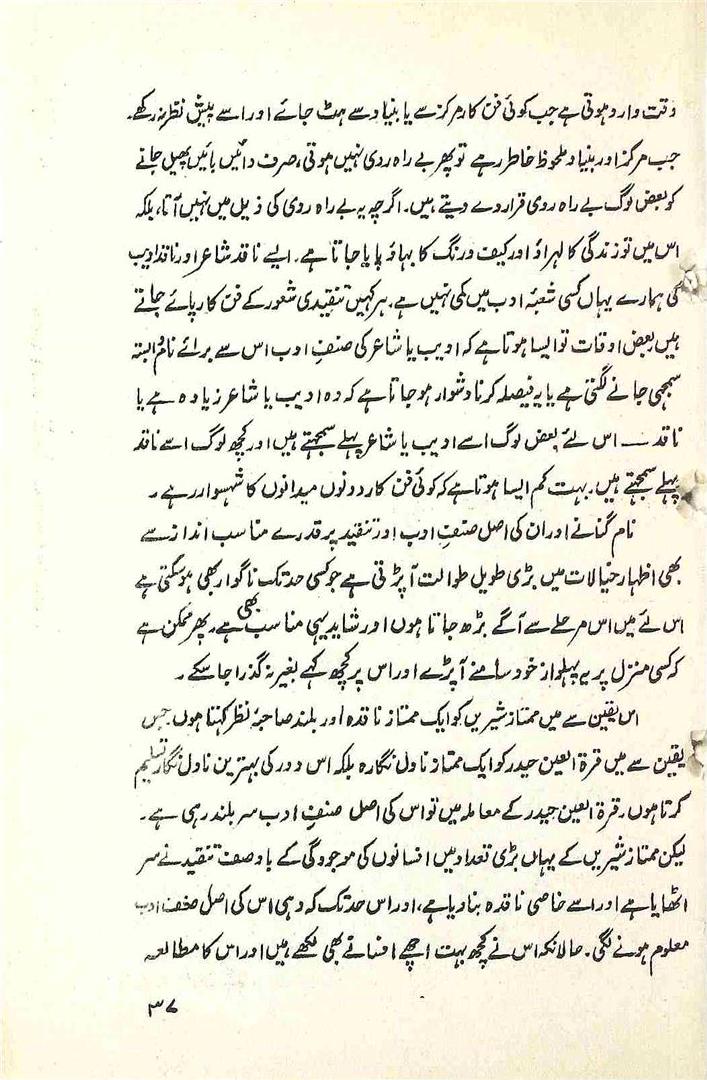 وقت وارد ہوتی ہے جب کوئی فن کار مرکز سے یا بنیاد سے ہٹ جائے اور اسے پیش نظر نہ رکھے۔
جب مرکز اور بنیاد ملحوظ خاطر رہے تو پھر بے راہ روی نہیں ہوتی، صرف دائیں بائیں پھیل جانے
کو بعض لوگ بے راہ روی قرار دے دیتے ہیں۔ اگرچہ یہ بے راہ روی کی ذیل میں نہیں آتا، بلکہ
اس میں تو زندگی کا لہراؤ اور کیف و رنگ کا بہاؤ پایا جاتا ہے۔ ایسے ناقد شاعر اور ناقد ادیب
کی ہمارے یہاں کسی شعبۂ ادب میں کمی نہیں ہے، ہر کہیں تنقیدی شعور کے فن کار پائے جاتے
ہیں بعض اوقات تو ایسا ہوتا ہے کہ ادیب یا شاعر کی صنفِ ادب اس سے برائے نام وابستہ
سمجھی جانے لگتی ہے یا یہ فیصلہ کرنا دشوار ہو جاتا ہے کہ وہ ادیب یا شاعر زیادہ ہے یا
ناقد ــــ اس لئے بعض لوگ اسے ادیب یا شاعر پہلے سمجھتے ہیں اور کچھ لوگ اسے ناقد
پہلے سمجھتے ہیں۔ بہت کم ایسا ہوتا ہے کہ کوئی فن کار دونوں میدانوں کا شہسوار رہے۔
نام گنانے اور ان کی اصل صنفِ ادب اور تنقید پر قدرے مناسب انداز سے
بھی اظہار خیالات میں بڑی طویل طوالت آ پڑتی ہے جو کسی حد تک ناگوار بھی ہو سکتی ہے
اس لئے میں اس مرحلے سے آگے بڑھ جاتا ہوں اور شاید یہی مناسب بھی ہے۔ پھر ممکن ہے
کہ کسی منزل پر یہ پہلو از خود سامنے آ پڑے اور اس پر کچھ کہے بغیر نہ گذرا جا سکے۔
اس یقین سے میں ممتاز شیریں کو ایک ممتاز ناقدہ اور بلند صاحبۂ نظر کہتا ہوں جس
یقین سے میں قرۃ العین حیدر کو ایک ممتاز ناول نگارہ بلکہ اس دور کی بہترین ناول نگار تسلیم
کرتا ہوں۔ قرۃ العین حیدر کے معاملہ میں تو اس کی اصل صنفِ ادب سر بلند رہی ہے۔
لیکن ممتاز شیریں کے یہاں بڑی تعداد میں افسانوں کی موجودگی کے باوصف تنقید نے سر
اٹھایا ہے اور اسے خاصی ناقدہ بنا دیا ہے، اور اس حد تک کہ وہی اس کی اصل صنف ادب
معلوم ہونے لگی۔ حالانکہ اس نے کچھ بہت اچھے افسانے بھی لکھے ہیں اور اس کا مطالعہ
۳۷